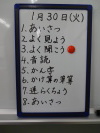 1月30日(火)
1.あいさつ
2.よく見よう
3.よく聞こう
4.音読
5.かん字
6.かけ算の筆算
7.連らくちょう
8.あいさつ